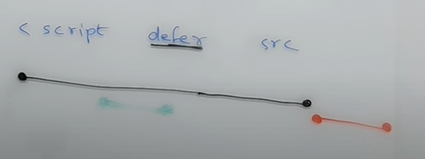 < script defer src